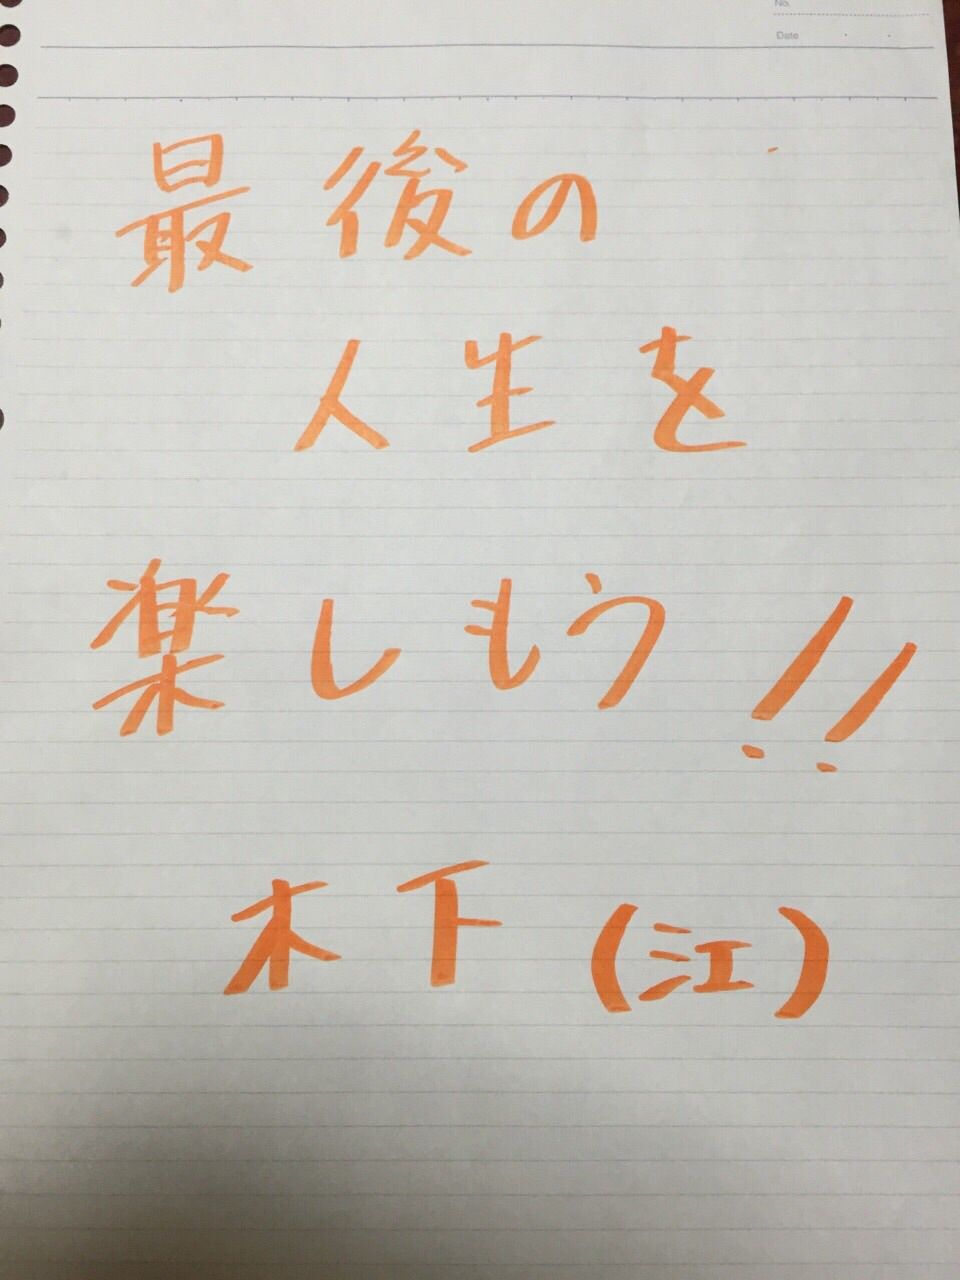 No.
Date
最後の
人生を
楽しもう!!
木下(江)